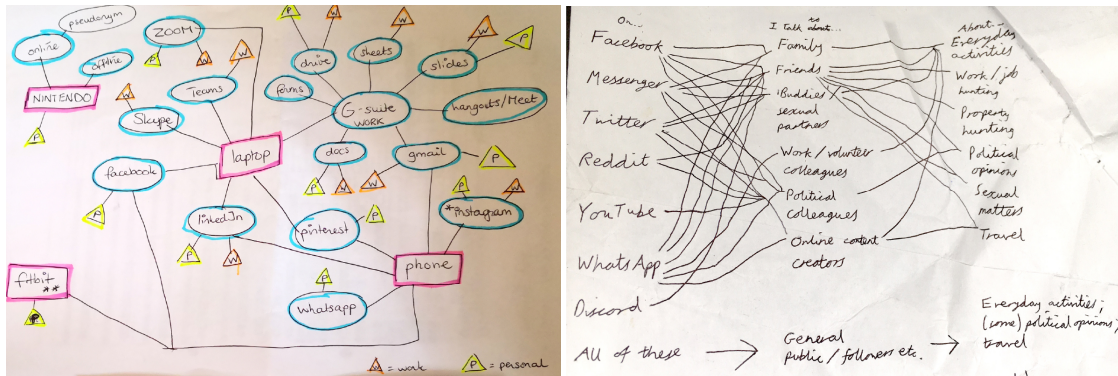 pseudonym
online
offline
NINTENDO
P
ZOOM
P
W
W
Teams
W
Skype
laptop
facebook
P
linkedIn
P
W
fitbit
**
P
P
W
drive
forms
sheets
W
slides
W
P
G-suite
WORK
hangouts/Meet
docs
P
W
gmail
W
P
P
W
*instagram
pinterest
P
phone
P
whatsapp
W = work
P = personal
On...
Facebook
Messenger
Twitter
Reddit
YouTube
WhatsApp
Discord
All of these
I Talk to
about...
Family
Friends
Buddies/
sexual
partners
Work/volunteer
colleagues
Political
colleagues
Online content
creators
General
public/followers etc.
About...
Everyday
activities
Work/job
hunting
Property
hunting
Political
opinions
Sexual
matters
Travel
Everyday activities;
(some) political opinions;
travel